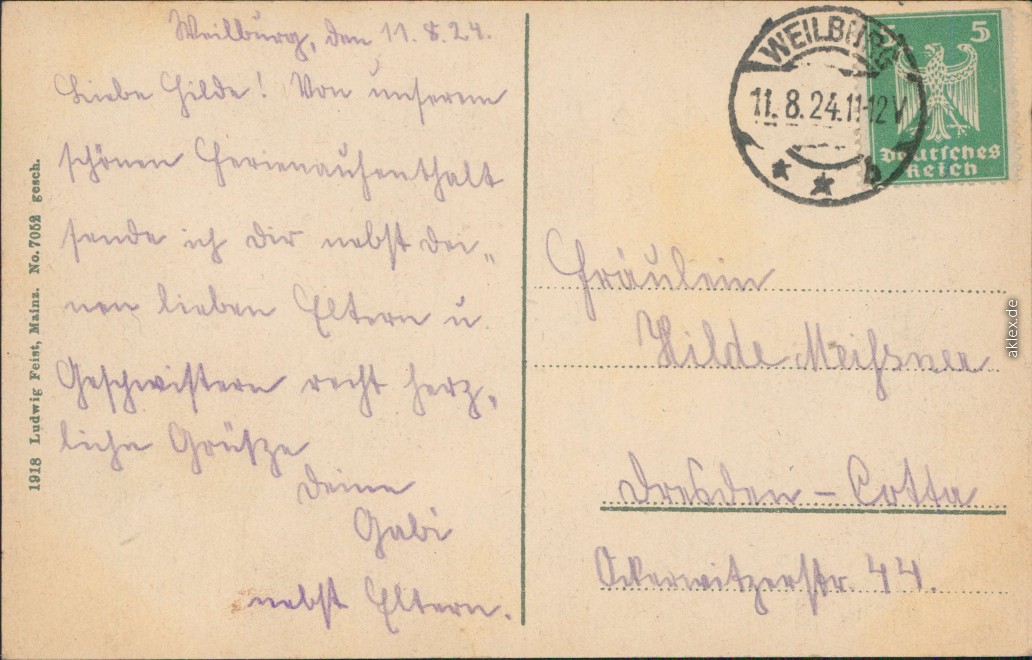 Weilburg, den 11.8.24.
Liebe Hilde! Von unserem
schönen Ferienaufenthalt
sende ich Dir nebst dei„
nen lieben Eltern u.
Geschwistern recht herz„
liche Grüße
Deine
Gabi
nebst Eltern.
1918 Ludwig Feist, Mainz. No. 7052 gesch.
WEILBURG
11.8.24.11-12V
* * b
5
Deutsches
Reich
Fräulein
Hilde Meißner
Dresden - Cotta
Ockerwitzerstr. 44.
aklex.de